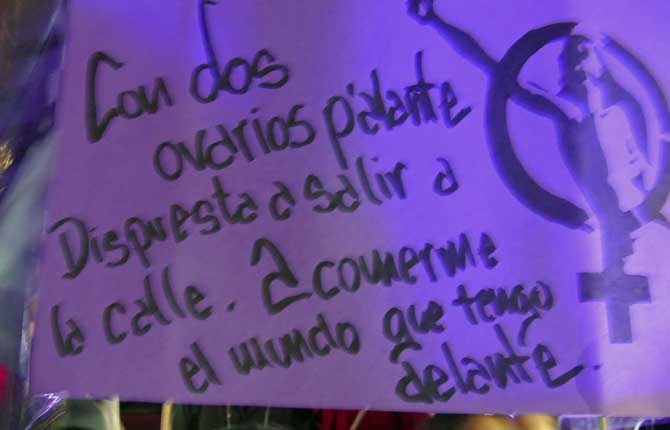 Con dos
ovarios p'alante
Dispuesta a salir a
la calle. A comerme
el mundo que tengo
delante.